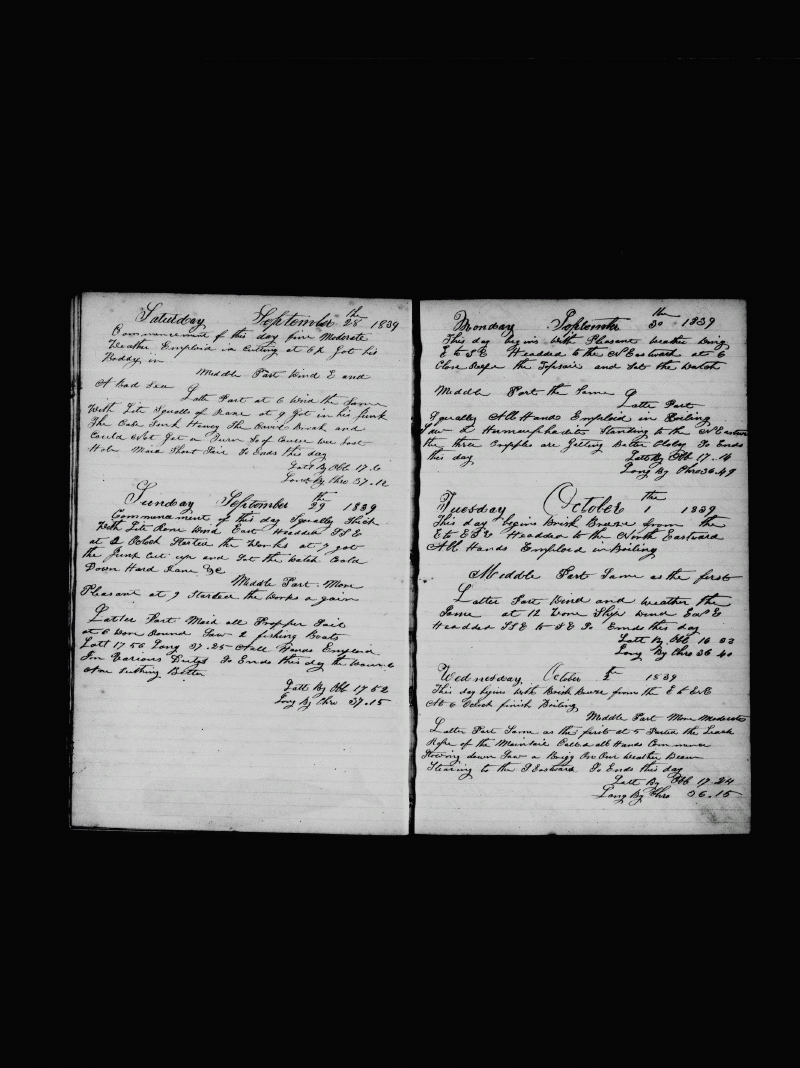 Saturday September 28 th 1839
Commencement of this day fine Moderate
Weather Emploid in Cutting at 6 P Got his
Boddy in
Middle Part Wind E and
A bad Sea
Latte Part at 6 Wind the Same
With Lite Squalls of Rane at 9 Got in his Junk
The Case Sunk Heavy The Quick Break and
Could Not Get a Turn So of Cause we Lost
Hole Maid Short Sail So Ends this day
Latt By Obb 17.6
Long By Chro 37.12
Sunday September 29 th 1839
Commencment of this day Squally Thick
With Lite Rane Wind East Headded SSE
at 2 Oclock Started the Works at 7 got
the Junk Cut up and Sot the Watch Cold
Down Hard Rane &c
Middle Part More
Pleasant at 9 Started the Works a gain
Latter Part Maid all Propper Sail
at 6 Wore Round Saw 2 fishing Boats
Latt 17 56 Long 37.25 All Hands Emploid
In Various Dutys So Ends this day the
Nothing Better
Latt By Obb 17 52
Long By Chro 37.15
Monday Septembr 30 th 1839
This day begins With Pleasant Weather Wind
E to SE Headded to the N Eastward at 6
Close Reefe the Topsail and Sot the Watch
Middle Part the Same
Latte Part
Squally All Hands Emploid in Boiling
Saw a Hermaphadite Standing to the N Eastward
the three are Getting Better So Ends
this day Latt By Obb 17.14
Long By Chro 36.49
Tuesday October 1 the 1839
This day begins Brisk Breaze from the
E to ESE Headded to the North Eastward
All Hands Emploied in Boiling
Meddle Part Same as the first
Latter Part Wind and Weather the
Same at 12 Wore Ship Wind E
Headded SSE to SE So Ends this day
Latt By Obb 16 53
Long By Chro 36 40
Wednesday October 2 1839
This day begins With Brisk Breeze from the E to ESE
At 6 Oclock finish Boiling
Middle Part More Moderate
Latter Part Same as the first at 5 Parted the Leach
Rope of the Maintsail Called all Hands Commence
Stowing down Saw a Brigg On Our Weather Beam
Stearing to the S Eastward So Ends this day
Latt By Obb 17.24
Long By Chro 36.15